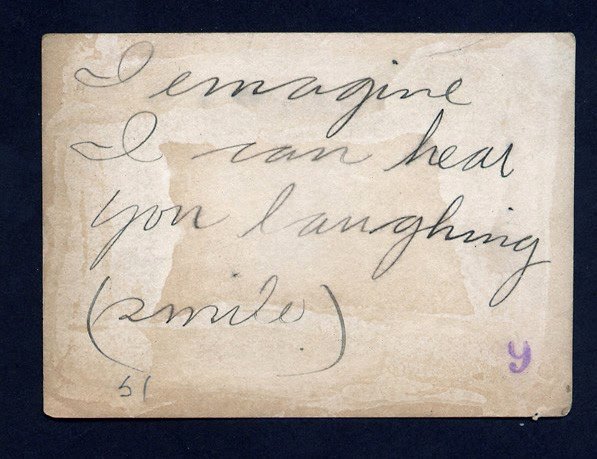 I emagine
I can hear
you laughing
(smile)
51
y